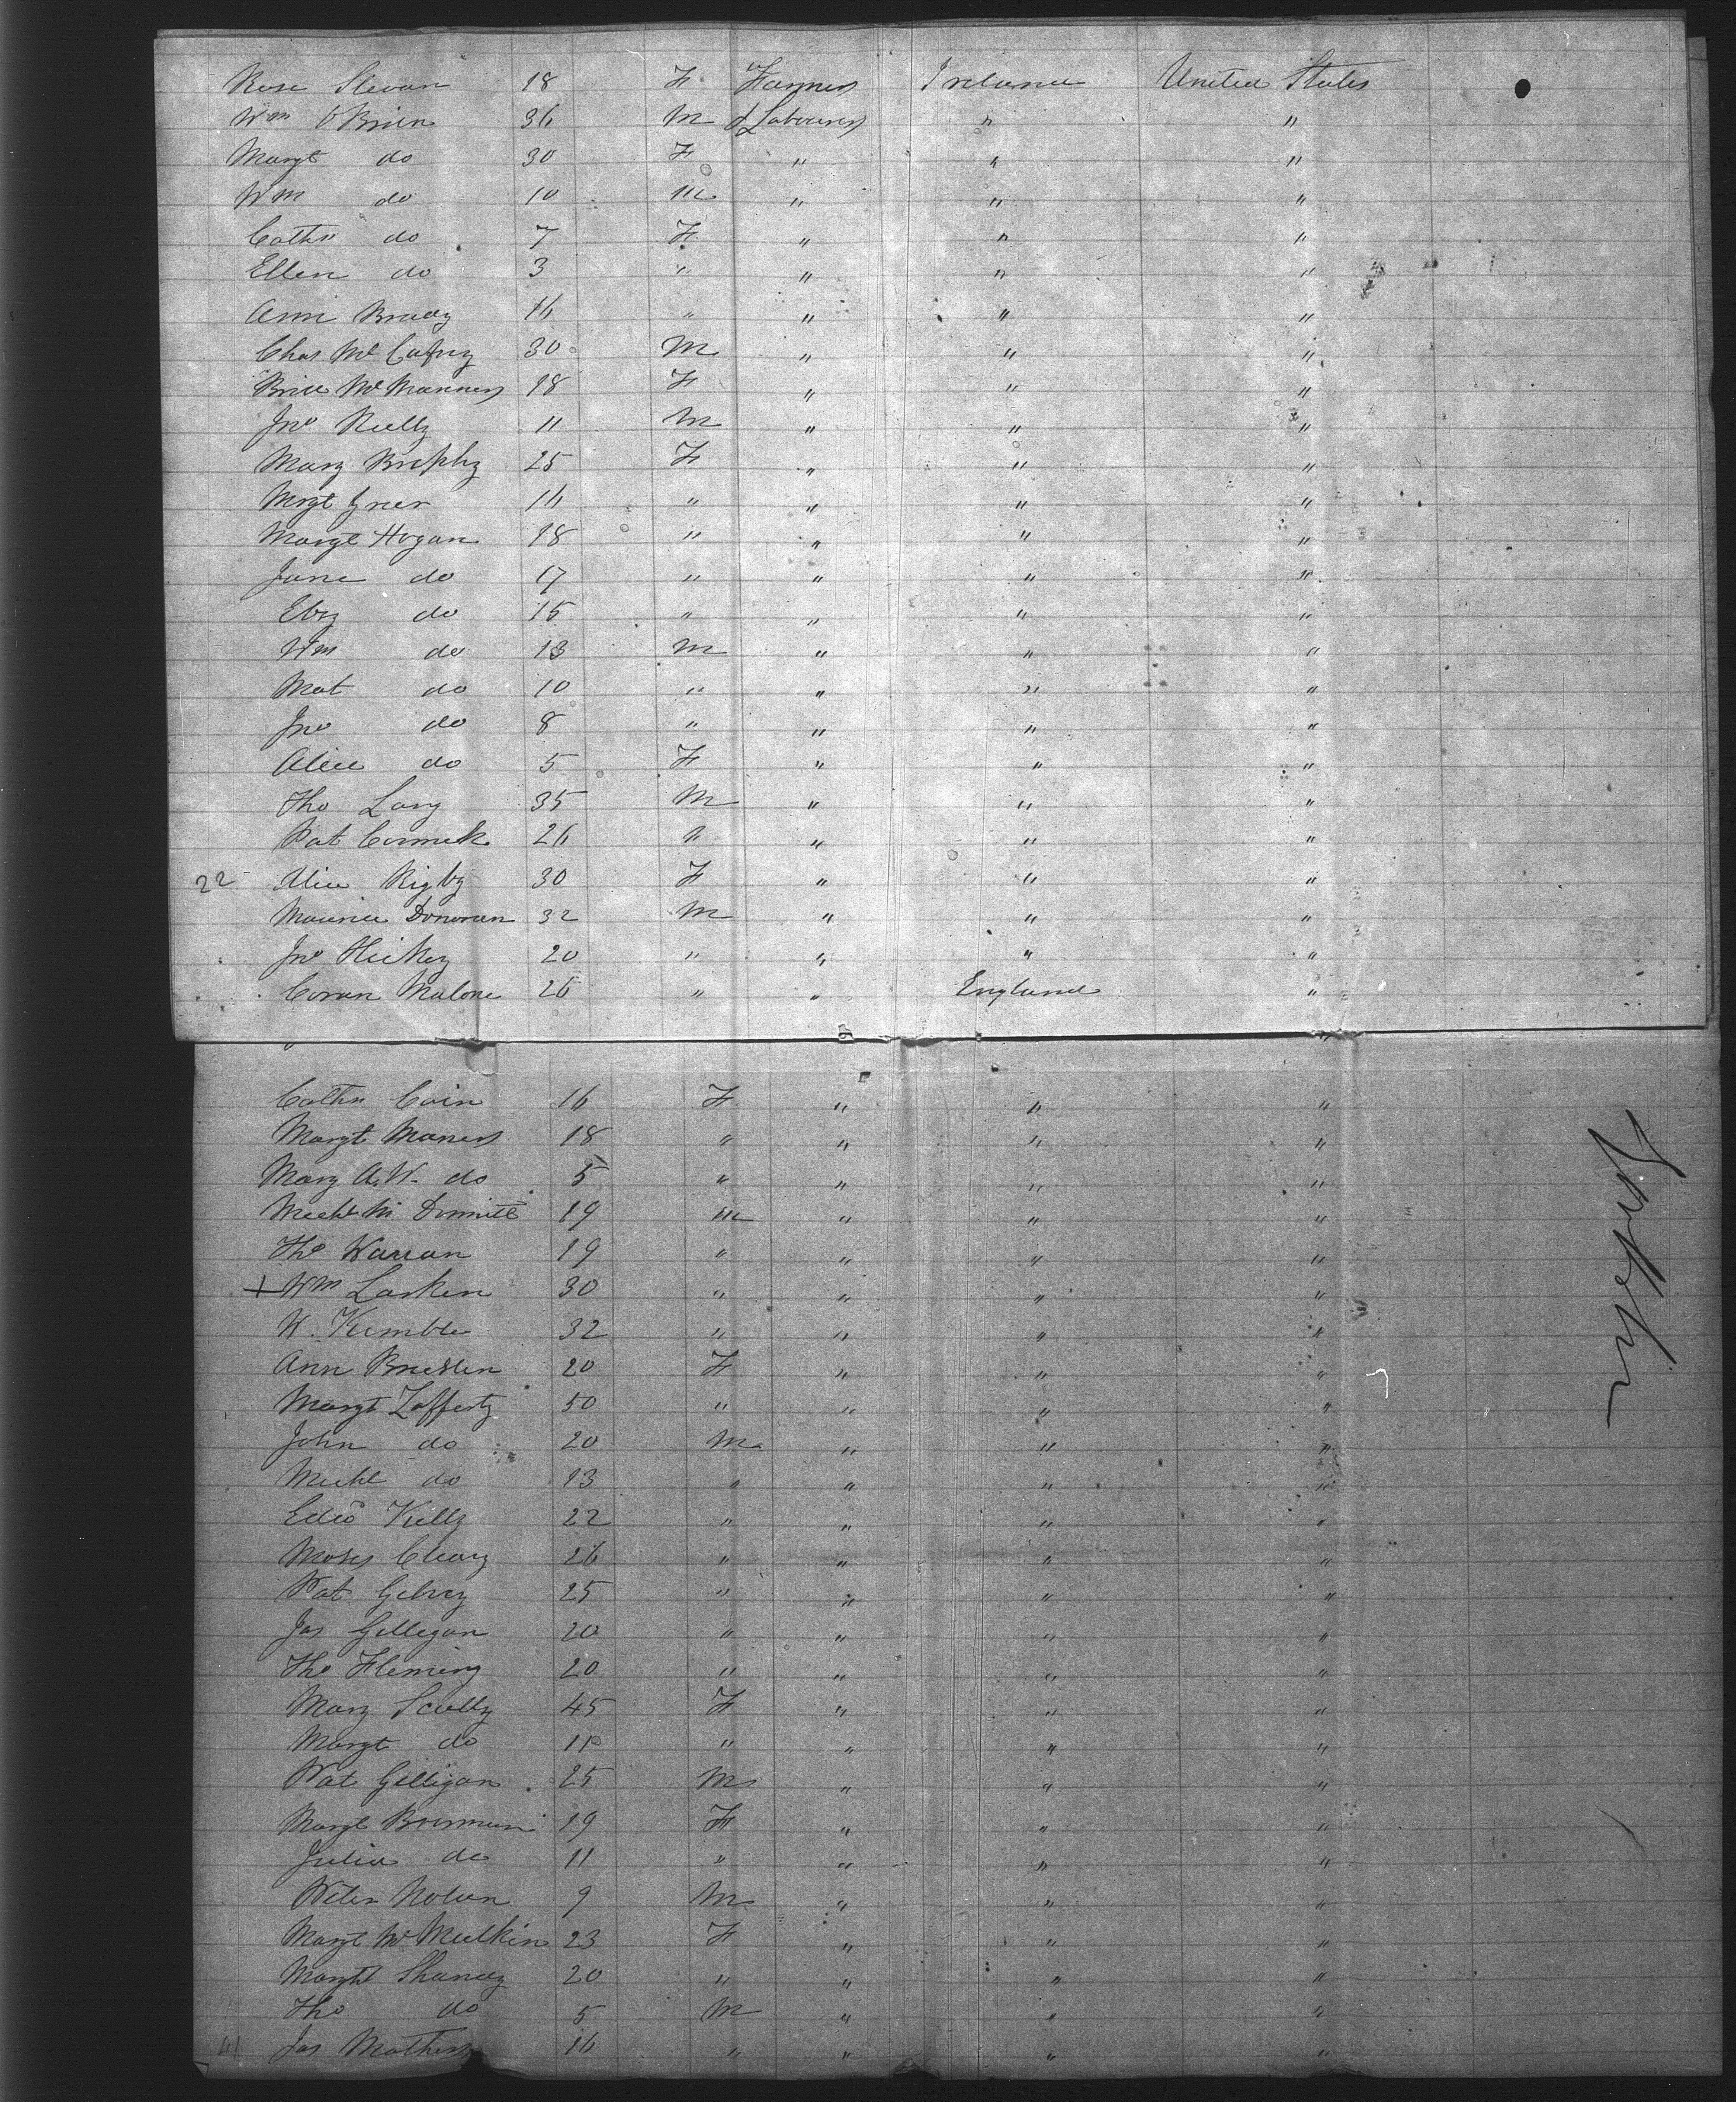 Rose Slevan 18 F Farmers Ireland United States
Wm O'Brien 36 M & Labourers " "
Margt do 30 F " " "
Wm do 10 M " " "
Cathn do 7 F " " "
Ellen do 3 " " " "
Ann Brady 16 " " " "
Chas McCafry 30 M " " "
Brid McManners 18 F " " "
Jno Rielly 11 M " " "
Mary Brophy 25 F " " "
Mrgt Greer 16 " " " "
Margt Hogan 18 " " " "
Jane do 17 " " " "
Elizy do 15 " " " "
Wm do 13 M " " "
Mat do 10 " " " "
Jno do 8 " " " "
Alice do 5 F " " "
Tho Lary 35 M " " "
Pat Cormick 26 " " " "
22 Alice Rigby 30 F " " "
Maurice Donovan 32 M " " "
Jno Hickey 20 " " " "
Coran Malone 26 " " England "
Cathn Cain 16 F " " "
Margt Maners 18 " " " "
Mary A.W. do 5 " " " "
Michl M Dermitt 19 M " " "
Tho Warran 19 " " " "
+ Wm Larken 30 " " " "
W. Kimble 32 " " " "
Ann Breslin 20 F " " "
Margt Lafferty 50 " " " "
John do 20 M " " "
Michl do 13 " " " "
Edwd Kelly 22 " " " "
Moses Cleary 26 " " " "
Pat Gelvey 25 " " " "
Jas Gilligan 20 " " " "
Tho Fleming 20 " " " "
Mary Scully 45 F " " "
Margt do 11 " " " "
Pat Gilligan 25 M " " "
Margt Brennan 19 F " " "
Julia do 11 " " " "
Peter Nolan 9 M " " "
Margt McMulkin 23 F " " "
Margt Shanay 20 " " " "
Tho do 5 M " " "
Jas Mathers 16 " " " "